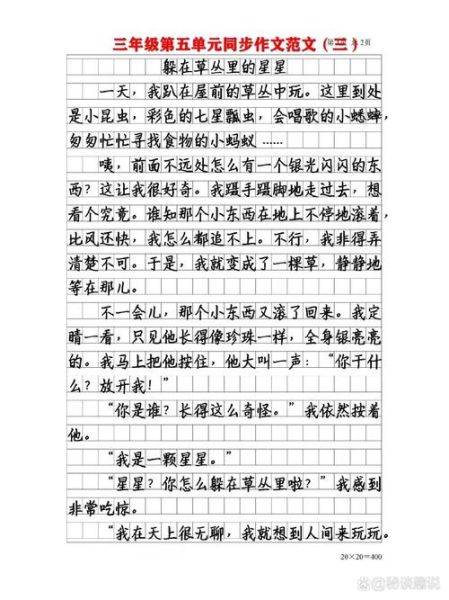 三年级第五单元同步作文范文(三)
共 2页
躲在草丛里的星星
一天，我趴在屋前的草丛中玩。这里到处
是小昆虫，彩色的七星瓢虫，会唱歌的小蟋蟀，
匆匆忙忙寻找食物的小蚂蚁……
咦，前面不远处怎么有一个银光闪闪的东
西？这让我很好奇。我蹑手蹑脚地走过去，想
看个究竟。谁知那个小东西在地上不停地滚着，
比风还快，我怎么都追不上。不行，我非得弄
清楚不可。于是，我就变成了一棵草，静静地
等在那儿。
不一会儿，那个小东西又滚了回来。我定
睛一看，只见他长得像珍珠一样，全身银亮亮
的。我马上把他按住，他大叫一声：“你干什
么？放开我！”
“你是谁？长得这么奇怪。”我依然按着
他。
“我是一颗星星。”
“星星？你怎么躲在草丛里啦？”我感到
非常吃惊。
“我在天上很无聊，我就想到人间来玩玩。
20×20=400